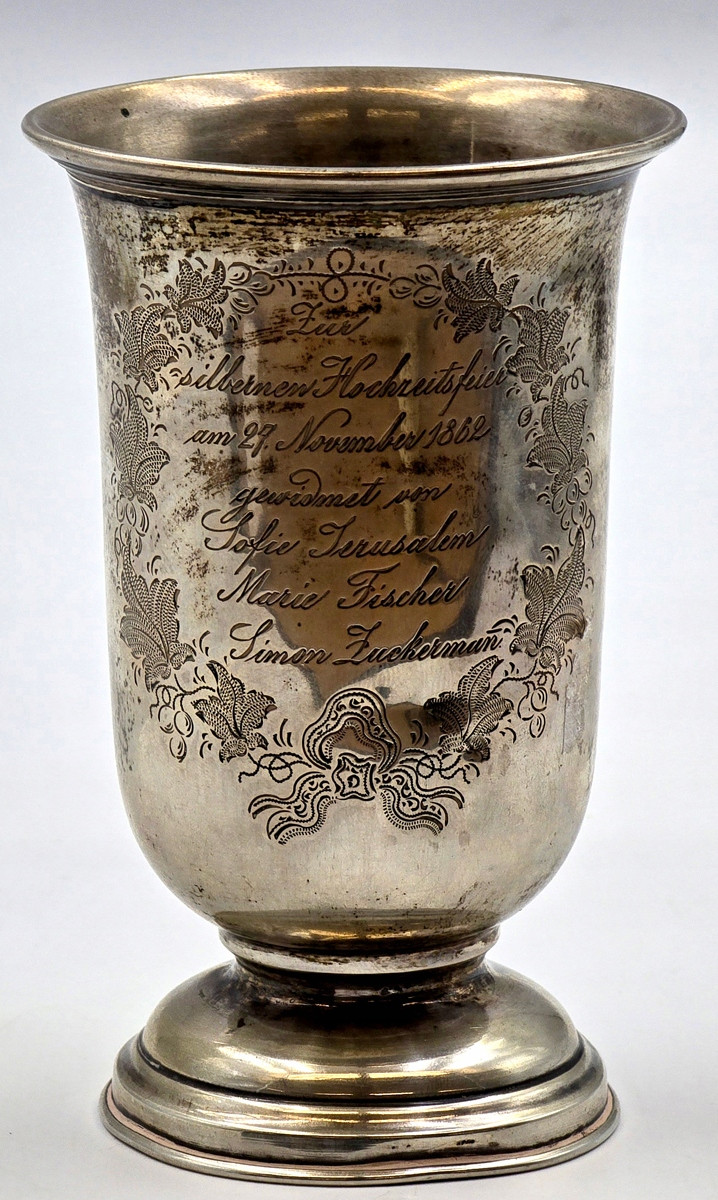 Zur
silbernen Hochzeitsfeier
am 27. November 1862
gewidmet von
Sofie Jerusalem
Marie Fischer
Simon Zuckermañ.